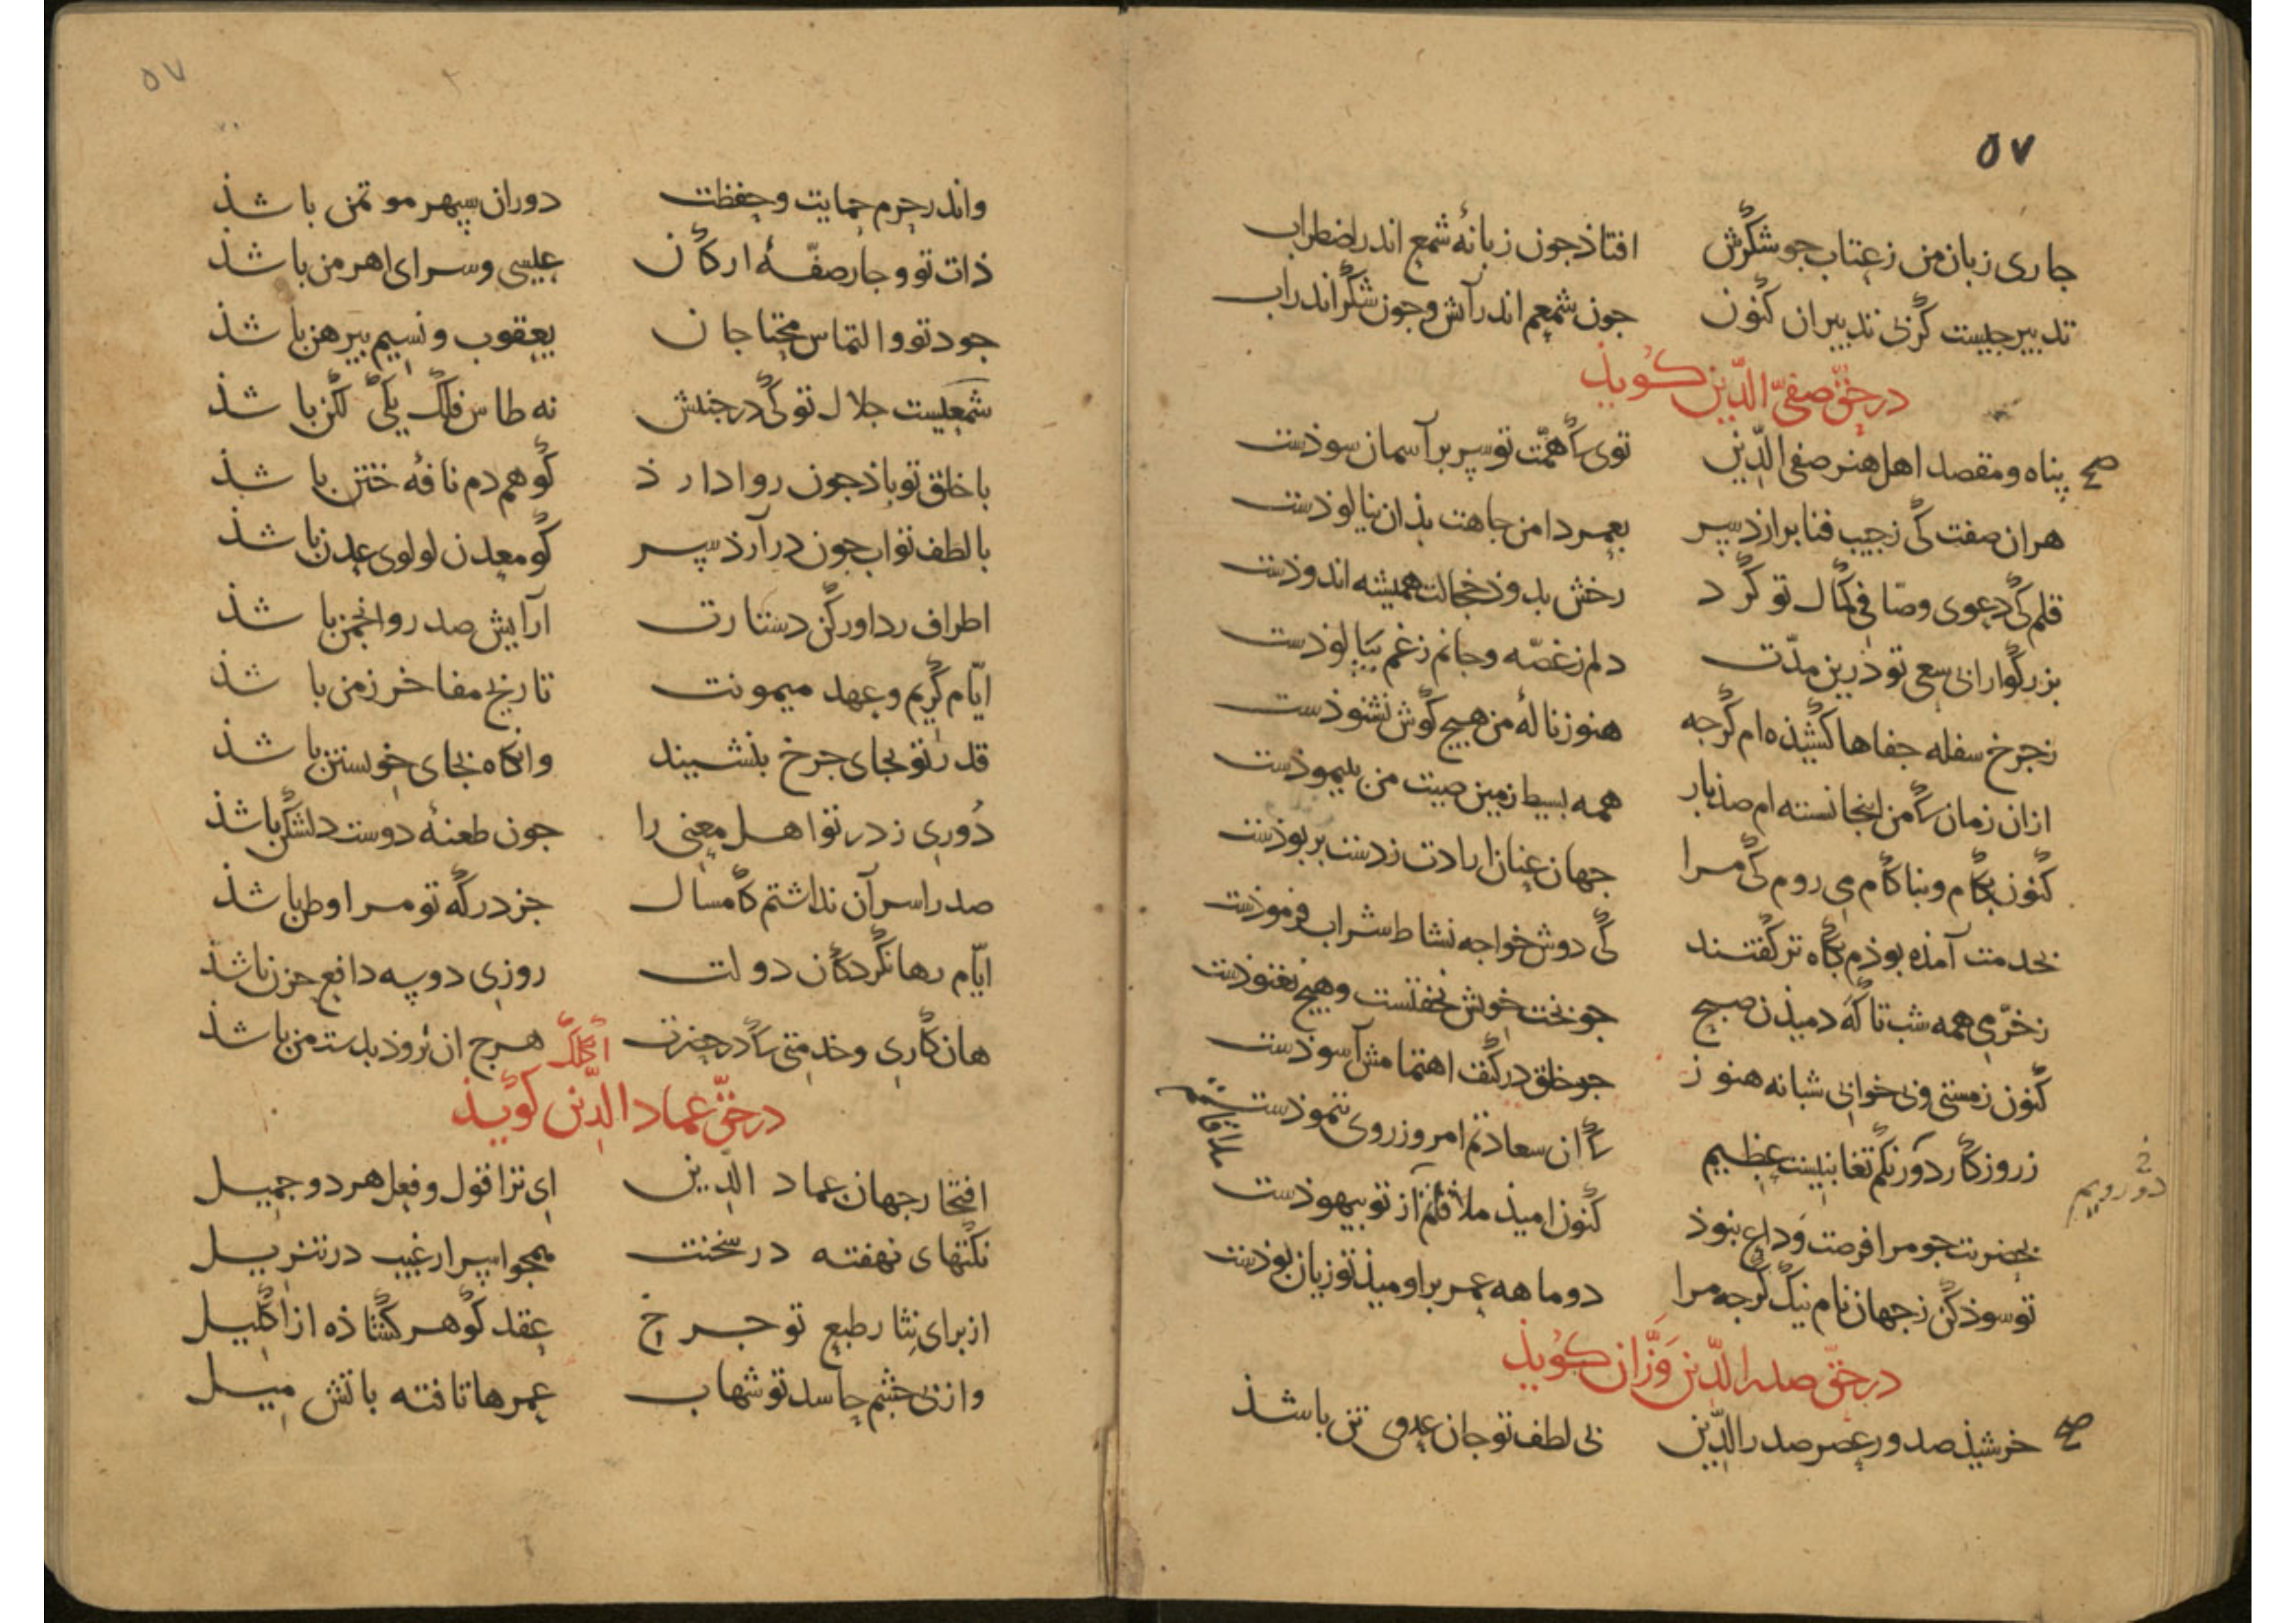 ٥٧
جاری زبان من ز عتاب جو شکرش افتاذ جون زبانهٔ شمع اندر اضطراب
تدبیر جیست کز بی تدبیر ان کنون جون شمعم اندر آتش و جون شکر اندر اب
در حق صفی الدین کویذ
صح پناه و مقصد اهل هنر صفی الدین توی که همت تو سپر بر آسمان سوذست
هران صفت کی ز جیب فنا برارذ سر بعمر دامن جاهت بذان نیالوذست
قلم کی دعوی وصافی کمال تو کرد رخش بدوذ خجالت همیشه اندوذست
بزرکوارا بی سعی تو درین مدت دلم ز غصه و جانم ز غم بپالوذست
ز جرخ سفله جفاها کشیذه ام کرجه هنوز نالهٔ من هیج کوش نشنوذست
ازان زمان که من اینجا نشسته ام صذ بار همه بسیط زمین صیت من بپیموذست
کنون بکام و بناکام می روم کی مرا جهان عنان ارادت ز دست بربوذست
بخدمت آمذه بوذم بکاه تر کفتند کی دوش خواجه نشاط شراب فرموذست
ز خرمی همه شب تا که دمیذن صبح جو بخت خویش نخفتست و هیج نغنوذست
کنون ز مستی و بی خوابی شبانه هنوز جو خلق در کنف اهتمامش آسوذست
ز روزکار دآورنکم تغابنیست عظیم که ان سعادتم امروز روی ننموذست
ملاقاتم
دو رویم
بحضرتت جو مرا فرصت وداع نبوذ کنون امیذ ملاقاتم از تو بیهوذست
تو سوذ کن ز جهان نام نیک کرجه مرا دو ماهه عمر بر اومیذ تو زیان بوذست
در حق صدر الدین وزان کویذ
صح خرشیذ صدور عصر صدر الدین بی لطف تو جان عدوی تن باشذ
٥٧
واندر حرم حمایت و حفظت دوران سپهر موتمن باشذ
ذات تو و جار صفهٔ ارکان عیسی و سرای اهرمن باشذ
جود تو و التماس محتاجان یعقوب و نسیم پیرهن باشذ
شمعیست جلال تو کی در جنبش نه طاس فلک یکی لکن باشذ
با خلق تو باذ جون روا دارذ کو هم دم نافه ختن باشذ
با لطف تو اب جون درآرذ سر کو معدن لولوی عدن باشذ
اطراف ردا ور کن دستارت آرایش صدر و انجمن باشذ
ایام کریم و عهد میمونت تاریخ مفاخر زمن باشذ
قدر تو بجای جرخ بنشیند وانکاه بجای خویشتن باشذ
دوری ز در تو اهل معنی را جون طعنهٔ دوست دلشکن باشذ
صدرا سر آن نداشتم کامسال جز درکه تو مرا وطن باشذ
ایام رها نکرد کان دولت روزی دو سه دافع حزن باشذ
هان کاری و خدمتی که در حضرت هرج ان نروذ بدست من باشذ
در حق عماد الدین کویذ
افتخار جهان عماد الدین ای ترا قول و فعل هر دو جمیل
نکتهای نهفته در سخنت همجو اسرار غیب در تنزیل
از برای نثار طبع تو جرخ عقد کوهر کشاذه از اکلیل
وز بی جشم حاسد تو شهاب عمرها تافته باتش میل